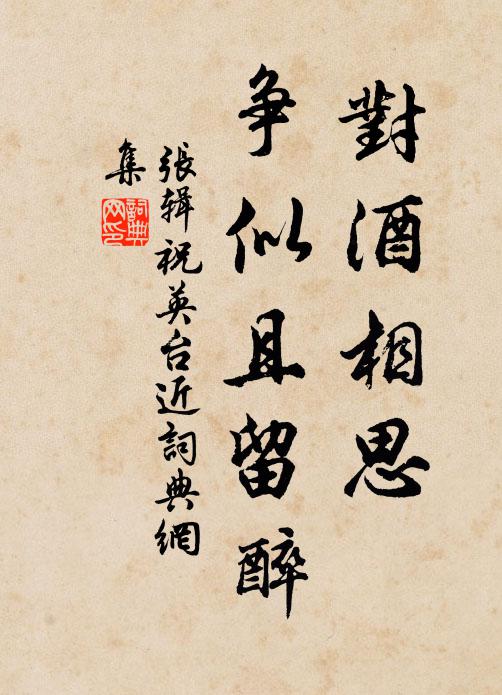 對酒相思
爭似且留醉
張輯祝英台近詞典網
集
詞典网印